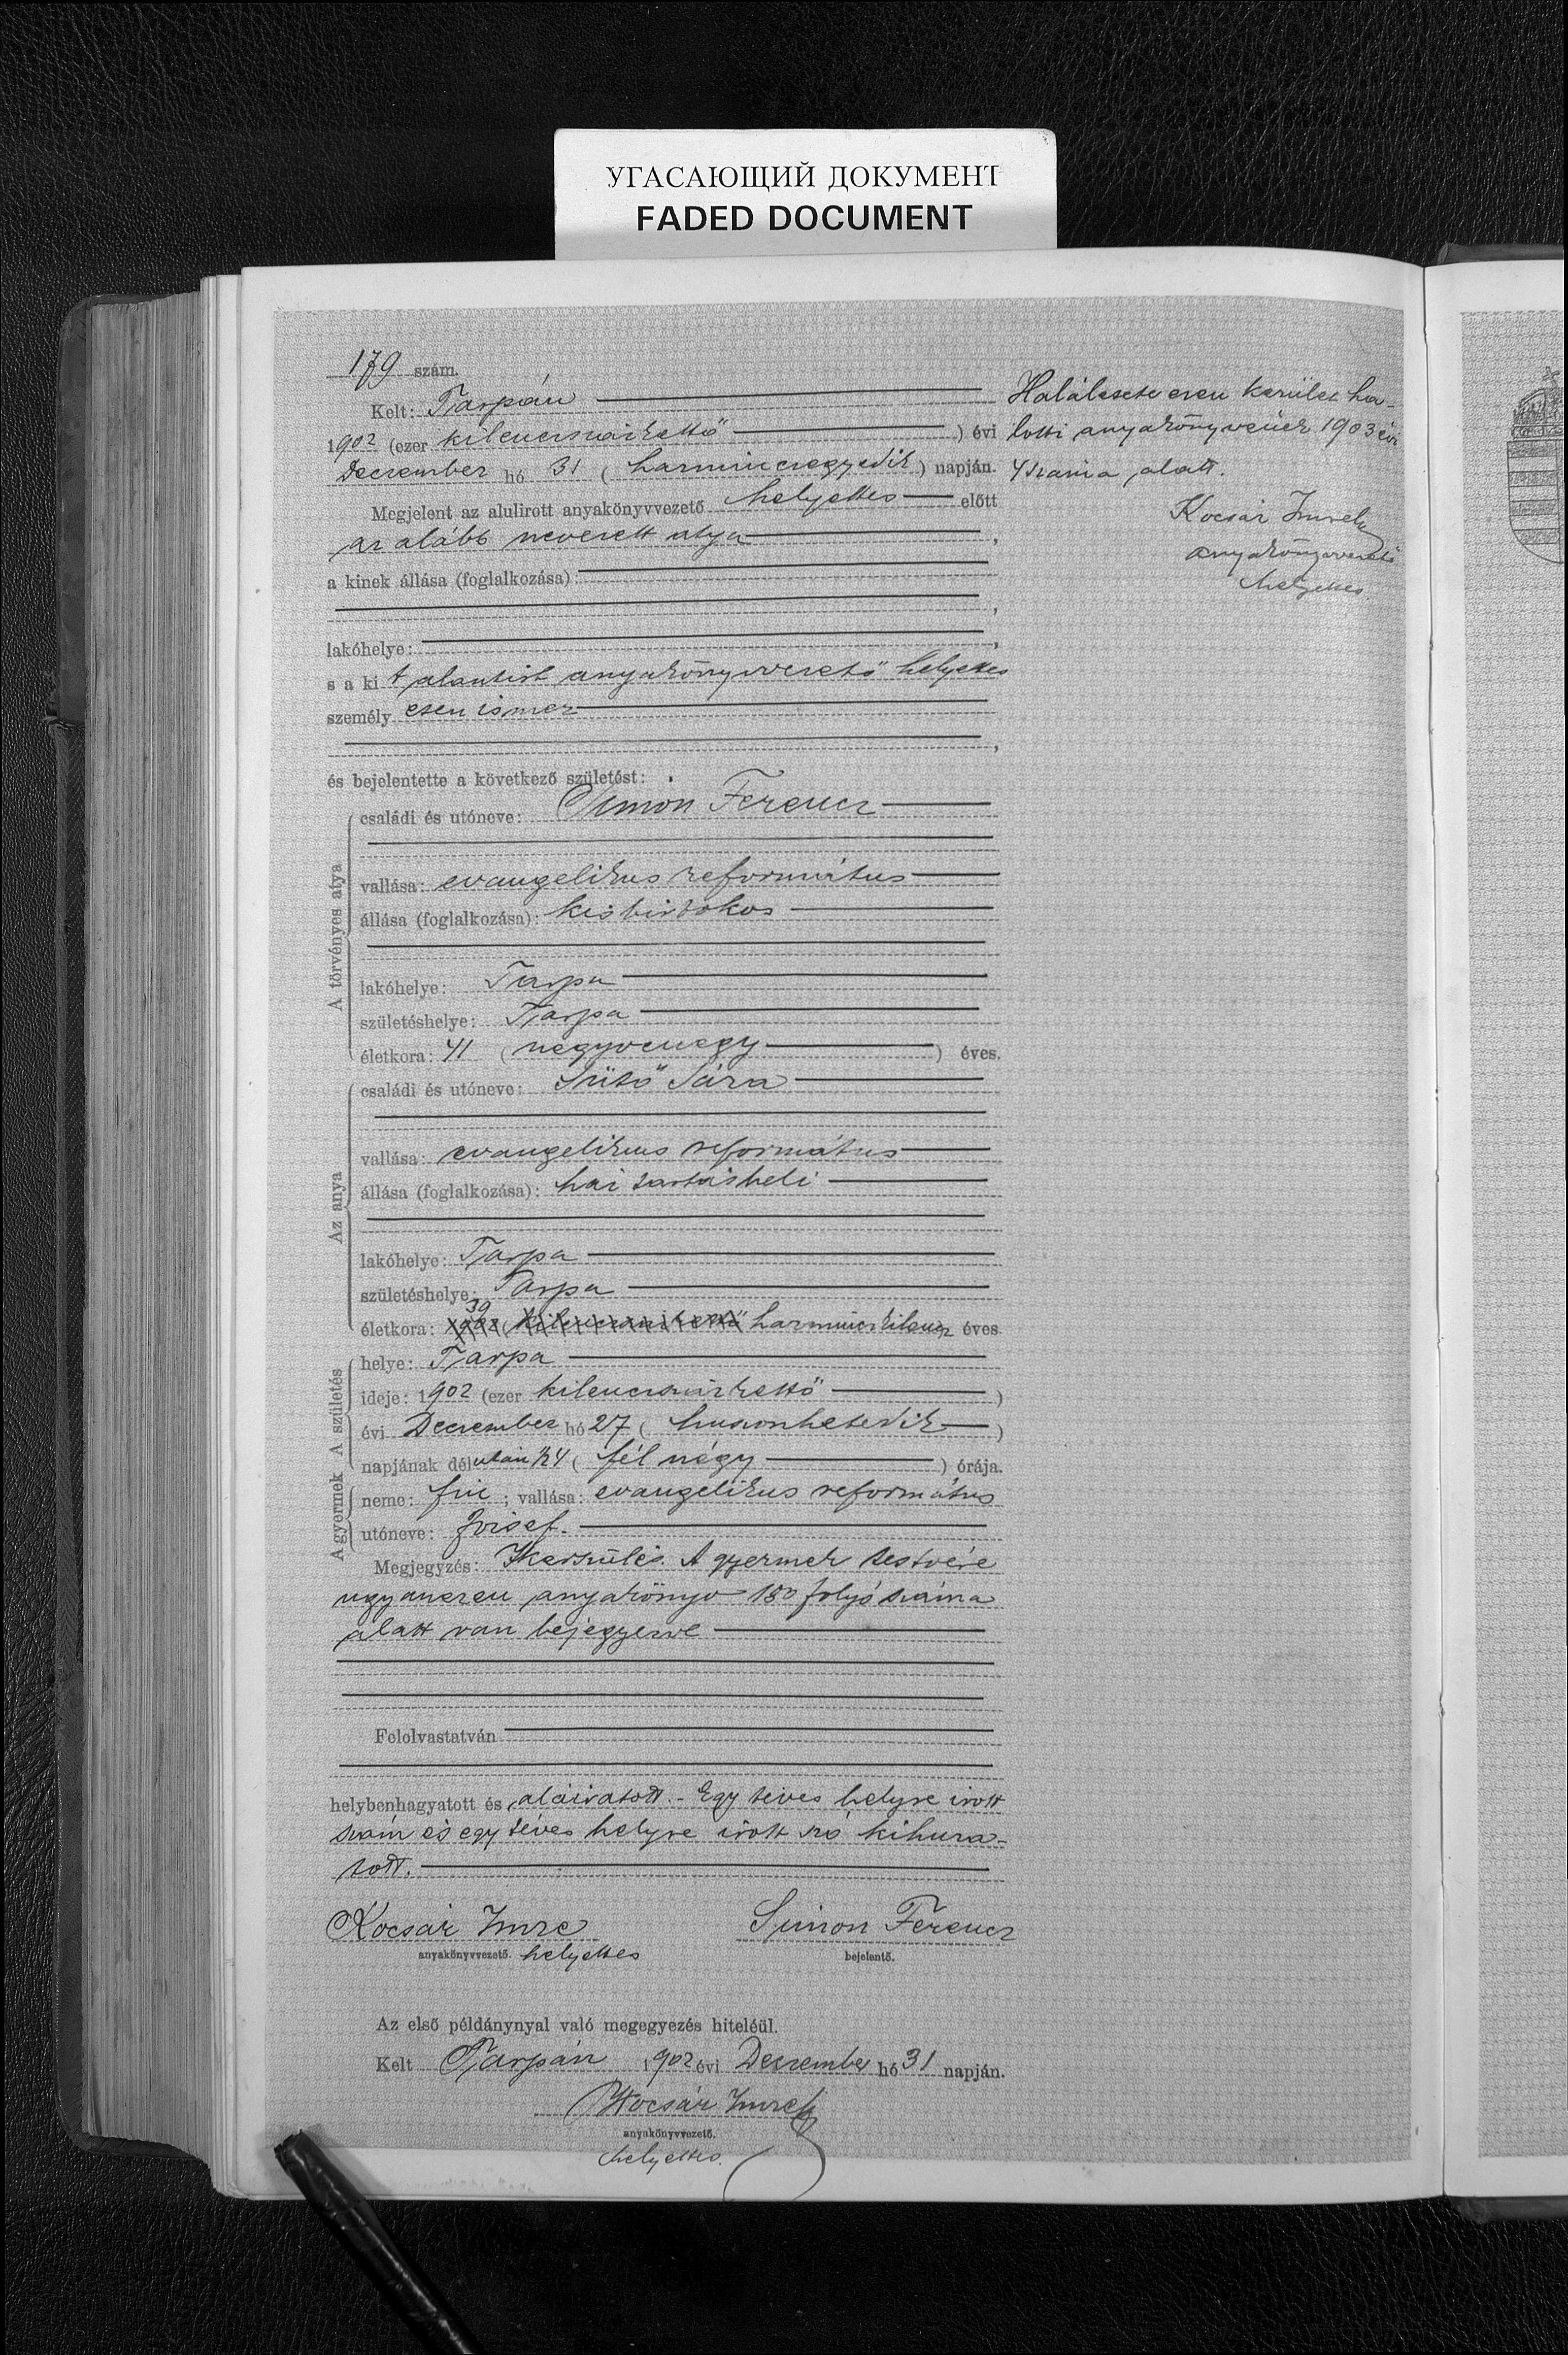 УГАСАЮЩИЙ ДОКУМЕНТ
FADED DOCUMENT
179 szám.
Kelt: Tarpán
1902 (ezer kilencszázkettő) évi
Deczember hó 31 (harminczegyedik) napján.
Megjelent az alulirott anyakönyvvezető helyettes előtt
az alább nevezett atya,
a kinek állása (foglalkozása):
,
lakóhelye: ,
s a kit alantirt anyakönyvvezető helyettes
személy esen ismer
,
és bejelentette a következő születést:
A törvényes atya
családi és utóneve: Simon Ferencz
vallása: evangelikus református
állása (foglalkozása): kisbirtokos
lakóhelye: Tarpa
születéshelye: Tarpa
életkora: 41 (negyvenegy) éves.
Az anya
családi és utóneve: Sütő Sára
vallása: evangelikus református
állása (foglalkozása): háztartásbeli
lakóhelye: Tarpa
születéshelye: Tarpa
39
életkora: 1902 (kilencszázkettő harminczkilencz éves
A születés
helye: Tarpa
ideje: 1902 (ezer kilencszázkettő)
évi Deczember hó 27 (huszonhetedik)
napjának délután ½4 (fél négy) órája.
A gyermek
neme: fiú; vallása: evangelikus református
utóneve: József.
Megjegyzés: Ikerszülés. A gyermek testvére
ugyanezen anyakönyv 180 folyó száma
alatt van bejegyezve
Felolvastatván
helybenhagyatott és aláiratott. - Egy téves helyre irott
szám és egy téves helyre irott szó kihuza-
tott.
Kocsár Imre Simon Ferencz
anyakönyvvezető. helyettes bejelentő.
Az első példánynyal való megegyezés hiteléül.
Kelt Tarpán 1902 évi Deczember hó 31 napján.
Kocsár Imre
anyakönyvvezető.
helyettes.
Halálesete ezen kerület ha-
lotti anyakönyvének 1903 évi
4 száma alatt.
Kocsár Imre
anyakönyvvezető
helyettes